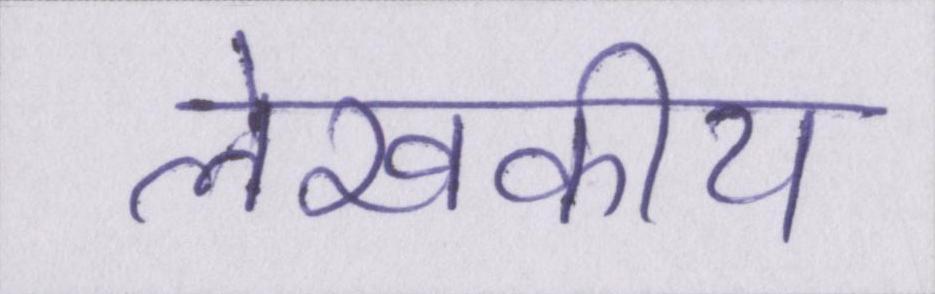 लेखकीय